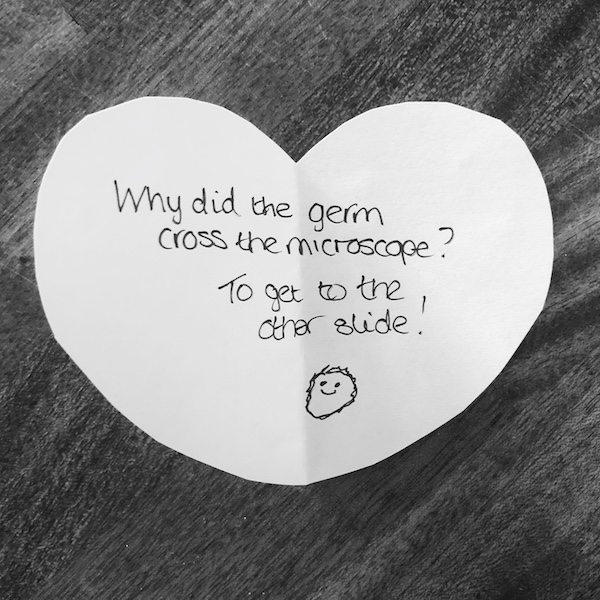 Why did the germ
cross the microscope?
To get to the
other slide!